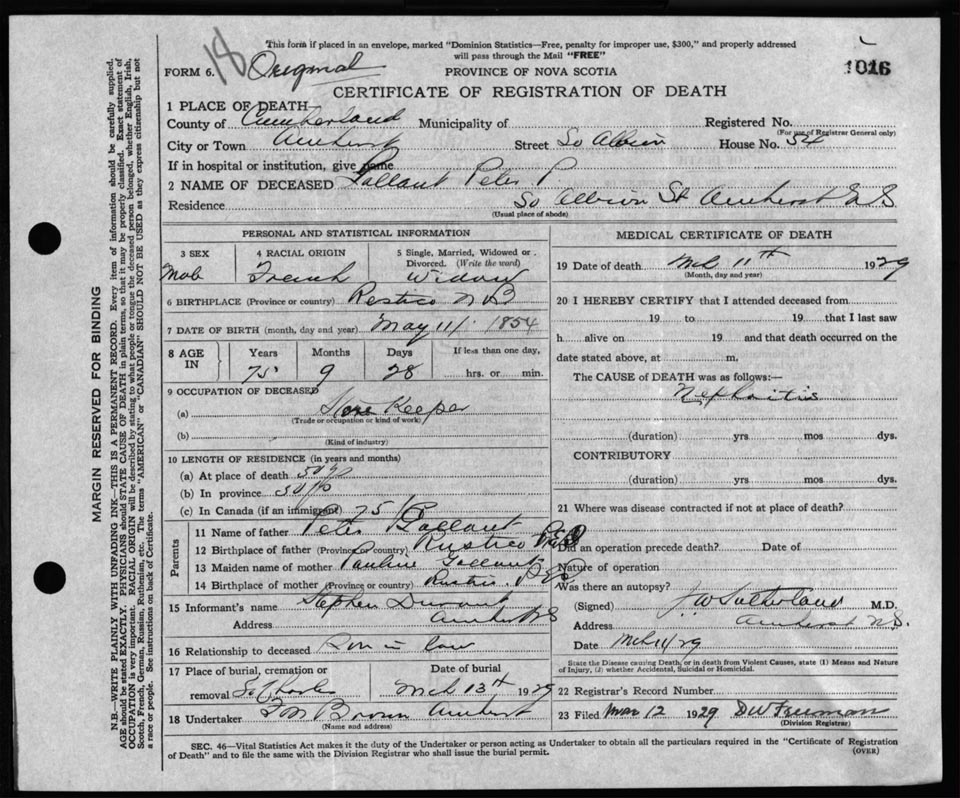 This form if placed in an envelope, marked "Dominion Statistics—Free, penalty for improper use, $300," and properly addressed
will pass through the Mail "FREE"
18 Original
1016
FORM 6. PROVINCE OF NOVA SCOTIA
CERTIFICATE OF REGISTRATION OF DEATH
1 PLACE OF DEATH
County of Cumberland Municipality of Registered No.
(For use of Registrar General only)
City or Town Amherst Street So Albion House No. 54
If in hospital or institution, give name
2 NAME OF DECEASED Gallant Peter P
Residence So Albion St Amherst N S
(Usual place of abode)
PERSONAL AND STATISTICAL INFORMATION
3 SEX 4 RACIAL ORIGIN 5 Single, Married, Widowed or Divorced. (Write the word)
Male French Widow
6 BIRTHPLACE (Province or country) Restico N B
7 DATE OF BIRTH (month, day and year) May 11/ 1854
8 AGE IN Years Months Days If less than one day,
75 9 28 hrs. or min.
9 OCCUPATION OF DECEASED
(a) Store Keeper
(Trade or occupation or kind of work)
(b)
(Kind of industry)
10 LENGTH OF RESIDENCE (in years and months)
(a) At place of death 50
(b) In province 50
(c) In Canada (if an immigrant) 75
Parents
11 Name of father Peter Gallant
12 Birthplace of father (Province or country) Rustico P E I
13 Maiden name of mother Pauline Gallant
14 Birthplace of mother (Province or country) Rustico P E I
15 Informant's name Stephen
Address Amherst N S
16 Relationship to deceased Son in law
17 Place of burial, cremation or removal Date of burial
St Charles Mch 13th 1929
18 Undertaker Brown Amherst
(Name and address)
MEDICAL CERTIFICATE OF DEATH
19 Date of death Mch 11th 1929
(Month, day and year)
20 I HEREBY CERTIFY that I attended deceased from
19 to 19 that I last saw
h alive on 19 and that death occurred on the
date stated above, at m.
The CAUSE of DEATH was as follows:—
Nephritis
(duration) yrs mos dys.
CONTRIBUTORY
(duration) yrs mos dys.
21 Where was disease contracted if not at place of death?
Did an operation precede death? Date of
Nature of operation
Was there an autopsy?
(Signed) J. W Sutherland M.D.
Address Amherst N.S.
Date Mch 11/29
State the Disease causing Death, or in death from Violent Causes, state (1) Means and Nature
of Injury, (2) whether Accidental, Suicidal or Homicidal.
22 Registrar's Record Number
23 Filed Mar 12 1929 D W Freeman
(Division Registrar)
SEC. 46—Vital Statistics Act makes it the duty of the Undertaker or person acting as Undertaker to obtain all the particulars required in the "Certificate of Registration
of Death" and to file the same with the Division Registrar who shall issue the burial permit. (OVER)
MARGIN RESERVED FOR BINDING
N.B.—WRITE PLAINLY WITH UNFADING INK—THIS IS A PERMANENT RECORD. Every item of information should be carefully supplied.
AGE should be stated EXACTLY. PHYSICIANS should STATE CAUSE OF DEATH in plain terms, so that it may be properly classified. Exact statement of
OCCUPATION is very important. RACIAL ORIGIN will be described by stating to what people or tongue the deceased person belonged, whether English, Irish,
Scotch, French, German, Russian, Ruthenian, etc. The terms "AMERICAN" or "CANADIAN" SHOULD NOT BE USED as they express citizenship but not
a race or people. See instructions on back of Certificate.